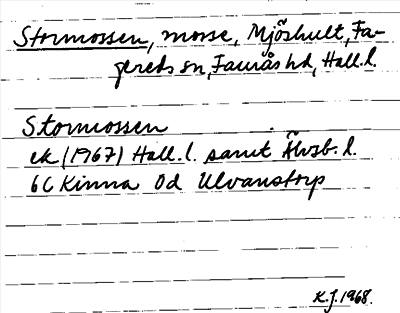 Stormossen, mosse, Mjöshult, Fa-
gereds sn, Faurås hd, Hall. l.
Stormossen
ek (1967) Hall. l. samt Älvsb. l.
6C Kinna 0d Ulvanstorp
K.J. 1968.